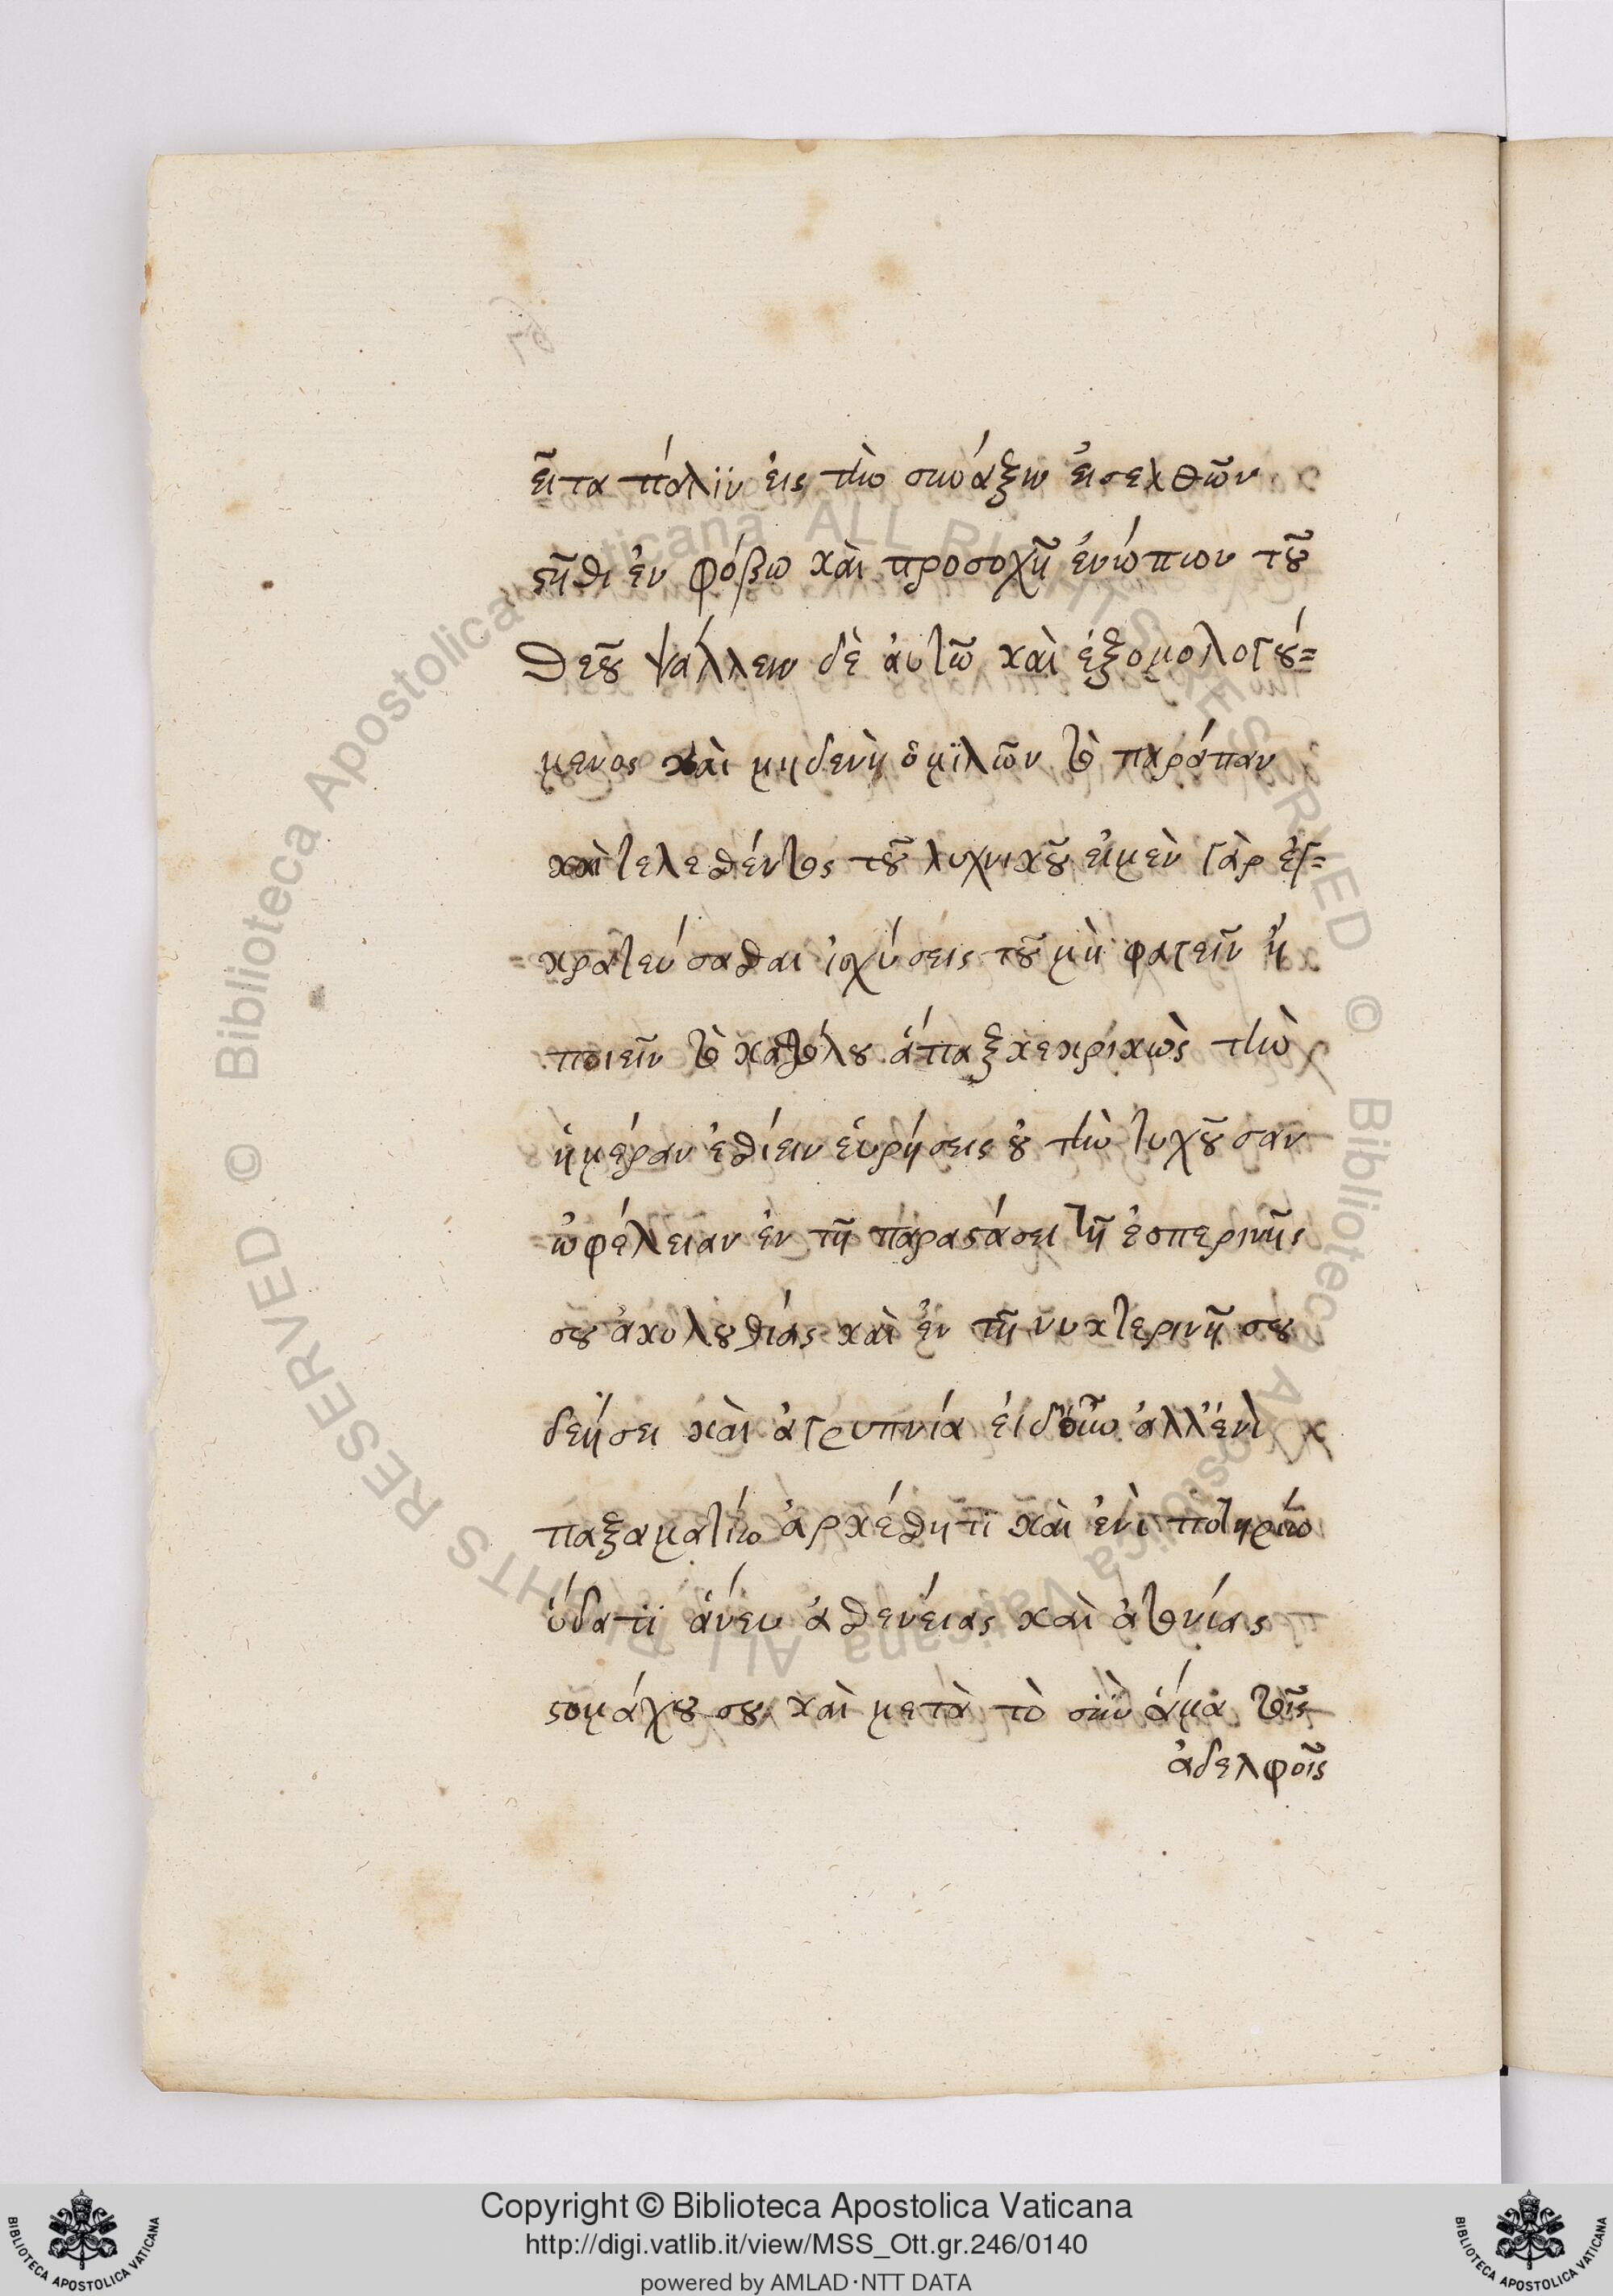 εἶτα πάλϊν εἰς τὴν σύναξιν εἰσελθῶν
στῆθι ἐν φόβω καὶ προσοχῆ ἐνώπιον τοῦ
Θεοῦ ψάλλειν δὲ ἀυτῶ καὶ ἐξομολογού=
μενος καὶ μηδενὴ ὁμϊλῶν τὸ παράπαν
καὶ τελεσθέντος τοῦ λυχνικοῦ εἰμὲν γὰρ ἐγ=
κρατεύσασθαι ἰσχύσεις τοῦ μὴ φαγεῖν ἢ
ποιεῖν τὸ καθόλου ἅπαξ κεκρικὼς τὴν
ἡμέραν ἐσθίειν ἑυρήσεις οὐ τὴν τυχοῦσαν
ὠφέλειαν ἐν τῆ παραστάσει τῆ ἑσπερινῆς
σου ἀκολουθίας καὶ ἐν τῆ νυκτερινῆ σου
δεήσει καὶ ἀγρυπνία εἰδ' οὖν ἀλλ' ἑνὶ
παξαματίω ἀρκέσθητϊ καὶ ἑνὶ ποτηρίω
ὕδατϊ ἄνευ ἀσθενείας καὶ ἀτονίας
στομάχου σου καὶ μετὰ τὸ σὴν ἅμα τοῖς
ἀδελφοῖς
Copyright © Biblioteca Apostolica Vaticana
http://digi.vatlib.it/view/MSS_Ott.gr.246/0140
powered by AMLAD·NTT DATA
BIBLIOTECA APOSTOLICA VATICANA
BIBLIOTECA APOSTOLICA VATICANA